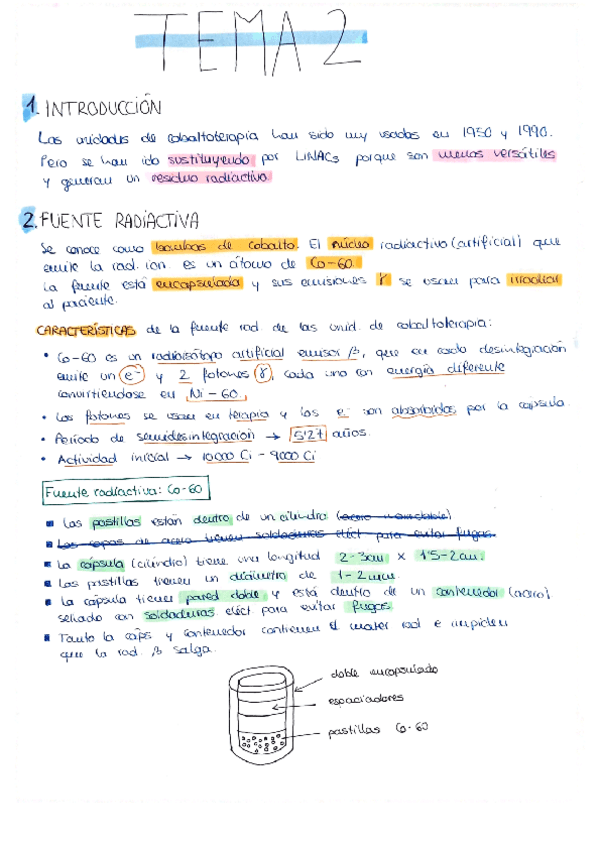 TEMA 2
1. INTRODUCCIÓN
Las unidades de cobaltoterapia han sido muy usadas en 1950 y 1990.
Pero se han ido sustituyendo por LINACs porque son menos versátiles
y generan un residuo radiactivo
2. FUENTE RADIACTIVA
Se conoce como bombas de cobalto. El núcleo radiactivo (artificial) que
emite la rad. ion. es un átomo de Co-60.
La fuente está encapsulada y sus emisiones γ se usan para irradiar
al paciente.
CARACTERÍSTICAS de la fuente rad. de las unid. de cobaltoterapia:
• Co-60 es un radioisótopo artificial emisor β, que en cada desintegración
emite un e⁻ y 2 fotones γ, cada uno con energía diferente
convirtiéndose en Ni-60.
• Los fotones se usan en terapia y los e⁻ son absorbidos por la cápsula.
• Período de semidesintegración → 5'27 años.
• Actividad inicial → 10000 Ci - 9000 Ci
Fuente radiactiva: Co-60
▪ Las pastillas están dentro de un cilindro (acero inoxidable)
▪ Las capas de acero tienen soldaduras eléct para evitar fugas.
▪ La cápsula (cilindro) tiene una longitud 2-3cm x 1'5-2cm.
▪ Las pastillas tienen un diámetro de 1-2mm
▪ La cápsula tienen pared doble y está dentro de un contenedor (acero)
sellado con soldaduras eléct para evitar fugas
▪ Tanto la caps y contenedor contienen el mater rad e impiden
que la rad. β salga.
doble encapsulado
espaciadores
pastillas Co-60